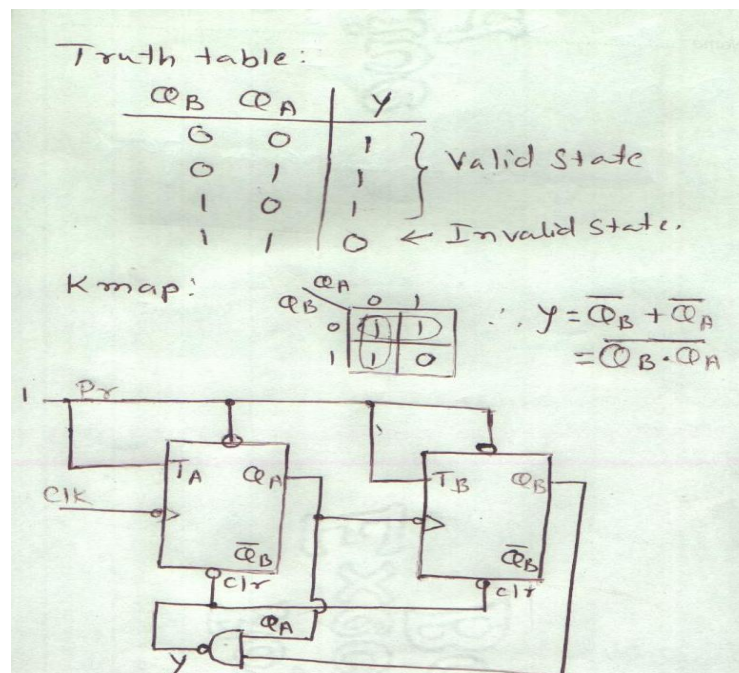 Truth table:
QB QA Y
0 0 1
0 1 1
1 0 1
1 1 0
} Valid State
← Invalid State.
Kmap:
QA
QB 0 1
0 1 1
1 1 0
∴ Y = Q̅B + Q̅A
= \overline{QB · QA}
1 Pr
TA QA
TB QB
Clk
Q̅B
Q̅B
Clr
Clr
QA
Y